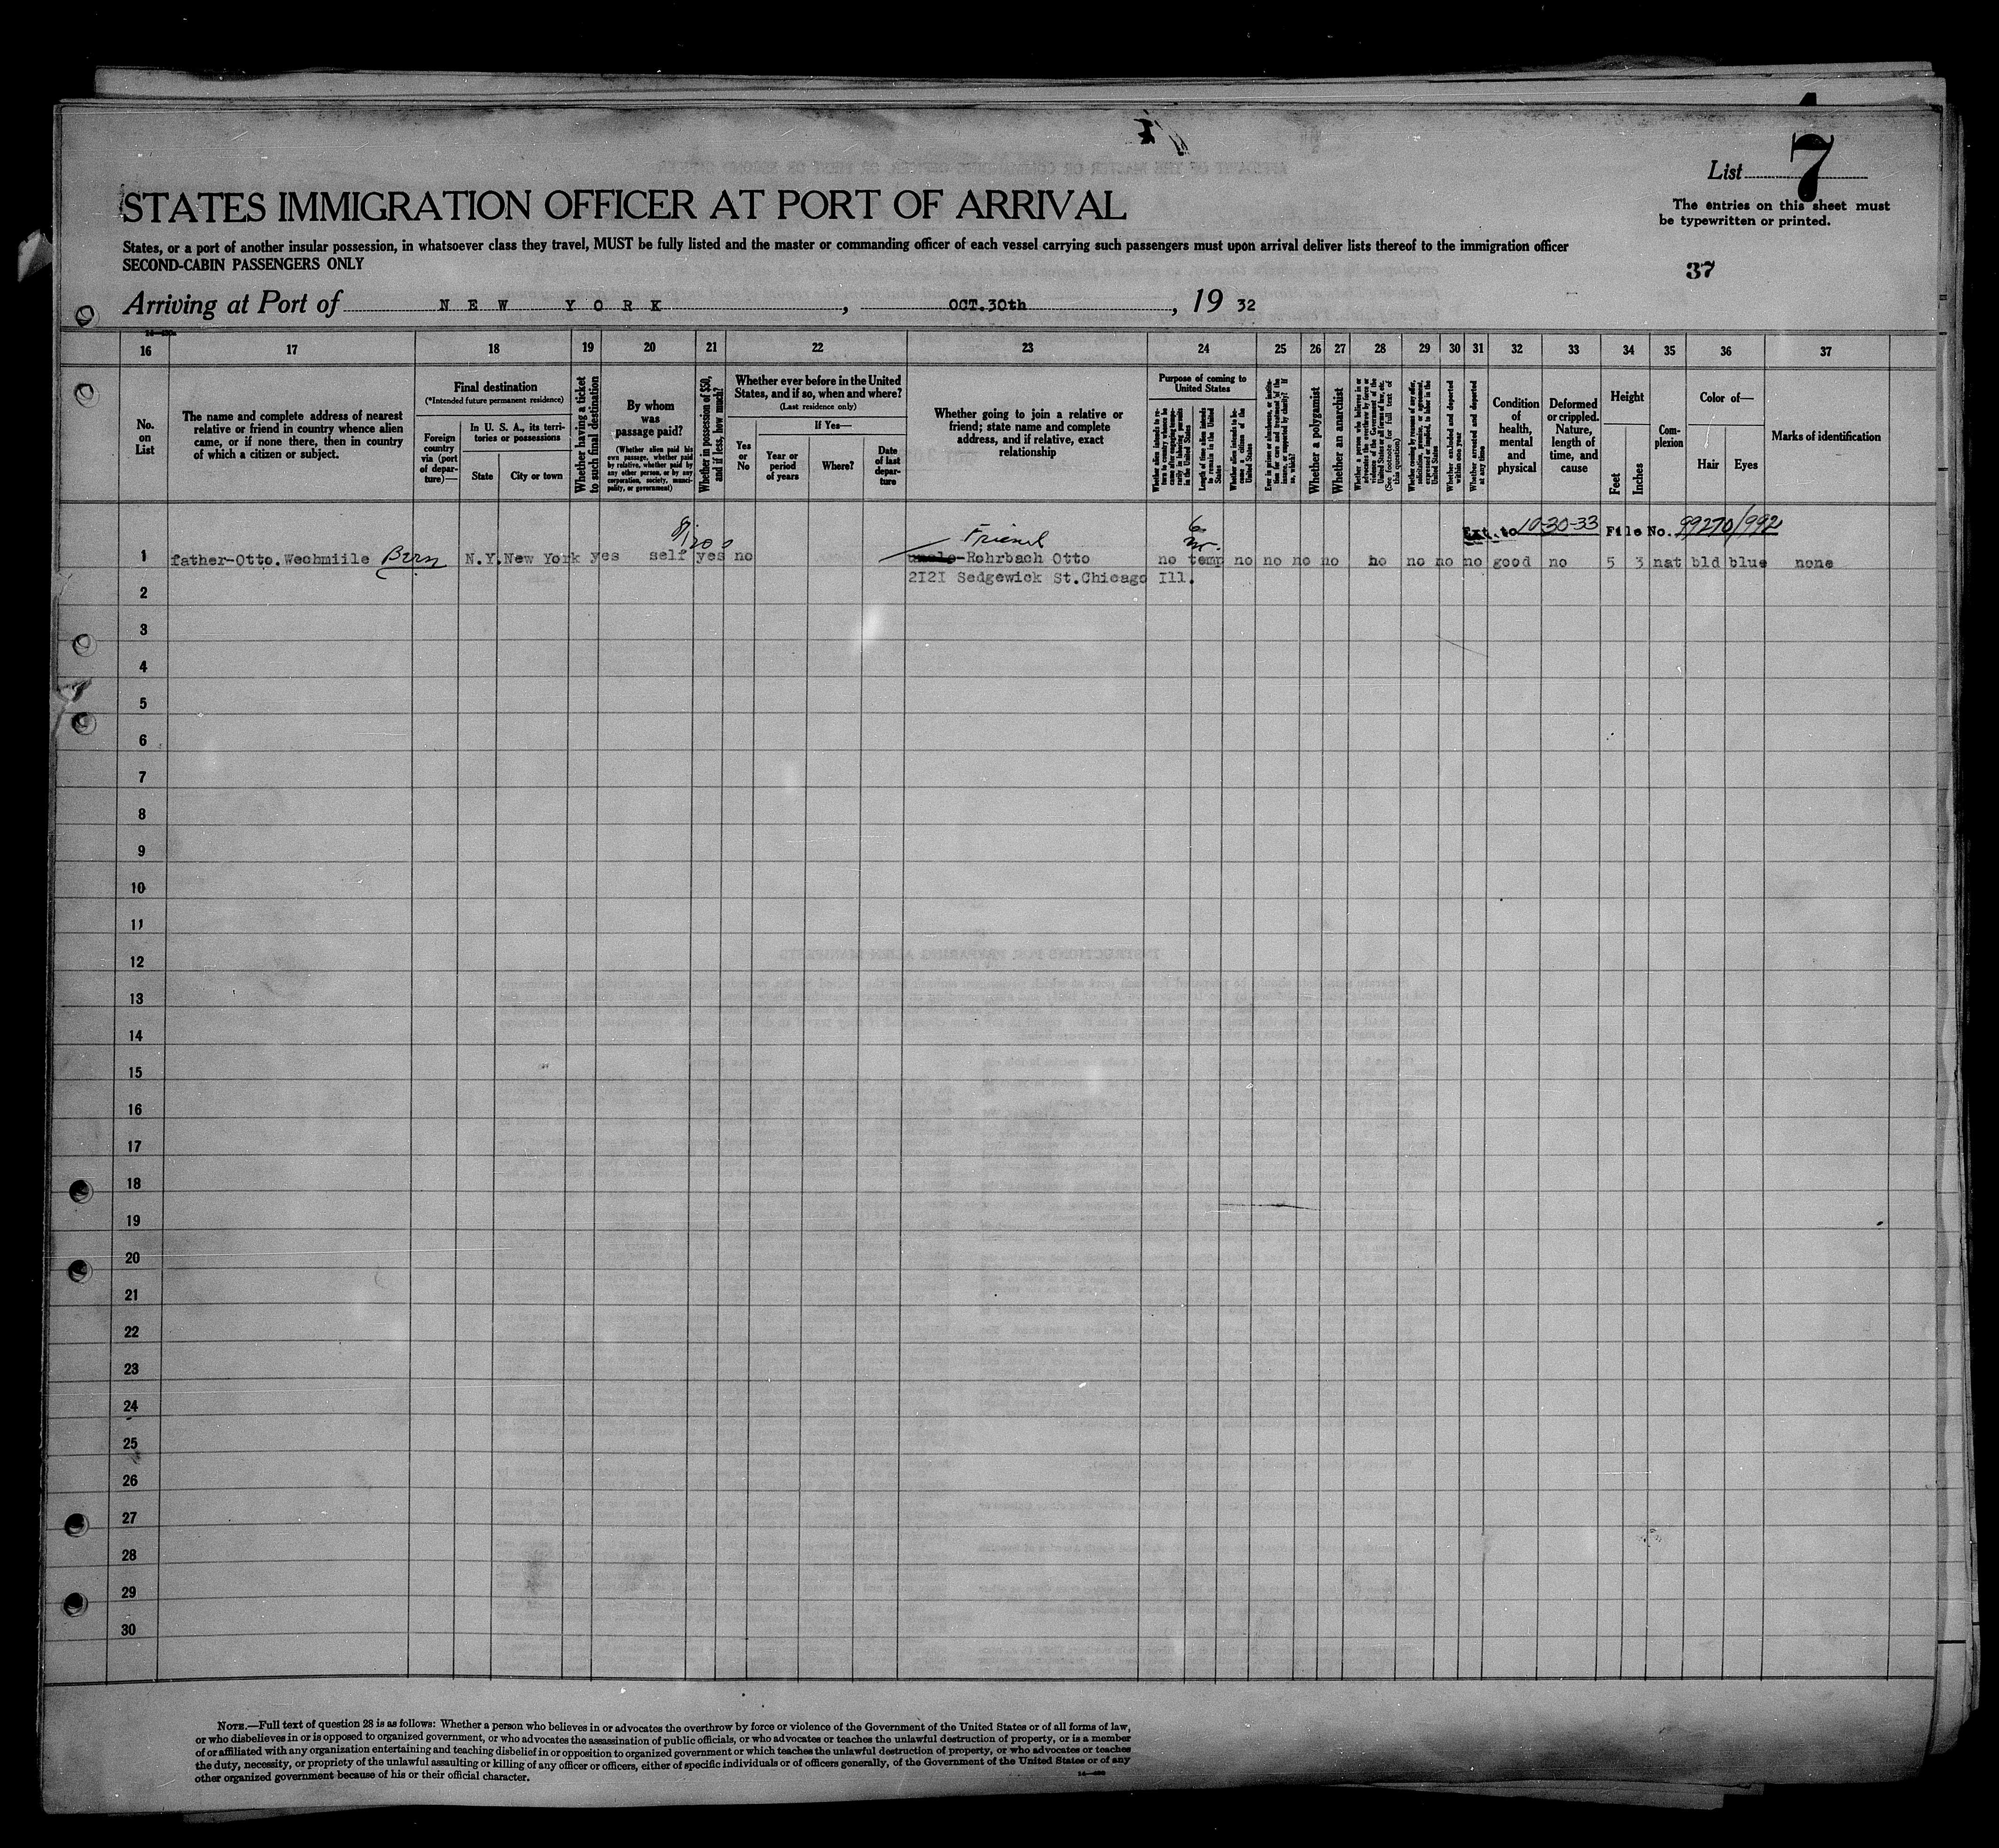 List 7
STATES IMMIGRATION OFFICER AT PORT OF ARRIVAL
The entries on this sheet must
be typewritten or printed.
States, or a port of another insular possession, in whatsoever class they travel, MUST be fully listed and the master or commanding officer of each vessel carrying such passengers must upon arrival deliver lists thereof to the immigration officer
SECOND-CABIN PASSENGERS ONLY
37
Arriving at Port of NEW YORK, OCT.30th, 19 32
16 17 18 19 20 21 22 23 24 25 26 27 28 29 30 31 32 33 34 35 36 37
No.
on
List
The name and complete address of nearest
relative or friend in country whence alien
came, or if none there, then in country
of which a citizen or subject.
Final destination
(*Intended future permanent residence)
Foreign
country
via (port
of depar-
ture)—
In U. S. A., its terri-
tories or possessions
State
City or town
Whether having a ticket
to such final destination
By whom
was
passage paid?
(Whether alien paid his
own passage, whether paid
by relative, whether paid by
any other person, or by any
corporation, society, munici-
pality, or government)
Whether in possession of $50,
and if less, how much?
Whether ever before in the United
States, and if so, when and where?
(Last residence only)
Yes
or
No
If Yes—
Year or
period
of years
Where?
Date
of last
depar-
ture
Whether going to join a relative or
friend; state name and complete
address, and if relative, exact
relationship
Purpose of coming to
United States
Whether alien intends to re-
turn to country whence he
came after engaging tempo-
rarily in laboring pursuits
in the United States
Length of time alien intends
to remain in the United
States
Whether alien intends to be-
come a citizen of the
United States
Ever in prison or almshouse, or institu-
tion for care and treatment of the
insane, or supported by charity? If
so, which?
Whether a polygamist
Whether an anarchist
Whether a person who believes in or
advocates the overthrow by force or
violence of the Government of the
United States or all forms of law, etc.
(See footnote for full text of
this question)
Whether coming by reason of any offer,
solicitation, promise, or agreement,
expressed or implied, to labor in the
United States
Whether excluded and deported
within one year
Whether arrested and deported
at any time
Condition
of
health,
mental
and
physical
Deformed
or crippled.
Nature,
length of
time, and
cause
Height
Feet
Inches
Com-
plexion
Color of—
Hair
Eyes
Marks of identification
Friend
6
Ext. to 10-30-33 File No. 99270/992
1 father-Otto.Wechmiile Bern N.Y. New York yes self yes no uncle-Rohrbach Otto no temp no no no no no no no no good no 5 3 nat bld blue none
2I2I Sedgewick St.Chicago Ill.
2
3
4
5
6
7
8
9
10
11
12
13
14
15
16
17
18
19
20
21
22
23
24
25
26
27
28
29
30
NOTE.—Full text of question 28 is as follows: Whether a person who believes in or advocates the overthrow by force or violence of the Government of the United States or of all forms of law,
or who disbelieves in or is opposed to organized government, or who advocates the assassination of public officials, or who advocates or teaches the unlawful destruction of property, or is a member
of or affiliated with any organization entertaining and teaching disbelief in or opposition to organized government or which teaches the unlawful destruction of property, or who advocates or teaches
the duty, necessity, or propriety of the unlawful assaulting or killing of any officer or officers, either of specific individuals or of officers generally, of the Government of the United States or of any
other organized government because of his or their official character.